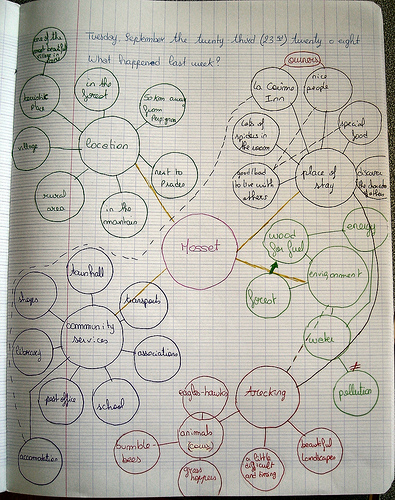 Tuesday, September the twenty third (23rd) twenty o eight
What happened last week?
one of the
most beautiful
village in
France
touristic
place
village
rural
area
in the
forest
location
50 km away
from
Perpignan
next to
Prades
in the
mountain
owners
nice
people
La Cavine
Inn
special
food
lots of
spiders in
the room
good food
to be with
others
place of
stay
discover
others
Mosset
wood
for fuel
energy
environment
forest
water
≠
pollution
townhall
shops
transports
community
services
library
associations
post office
school
accomodation
trecking
eagles-hawks
animals
(cows)
bumble
bees
grass
hoppers
a little
difficult
and tiring
beautiful
landscapes